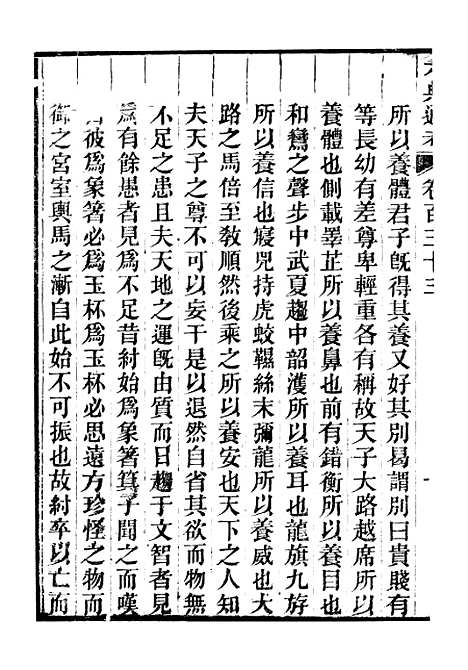 六典通考 卷百三十三
所以養體君子旣得其養又好其別曷謂別曰貴賤有
等長幼有差尊卑輕重各有稱故天子大路越席所以
養體也側載睪芷所以養鼻也前有錯衡所以養目也
和鸞之聲步中武夏趨中韶濩所以養耳也龍旗九斿
所以養信也寢兕持虎蛟韅絲末彌龍所以養威也大
路之馬倍至敎順然後乘之所以養安也天下之人知
夫天子之尊不可以妄干是以退然自省其欲而物無
不足之患且夫天地之運旣由質而日趨于文智者見
爲有餘愚者見爲不足昔紂始爲象箸箕子聞之而嘆
曰彼爲象箸必爲玉杯爲玉杯必思遠方珍怪之物而
御之宮室輿馬之漸自此始不可振也故紂卒以亡而